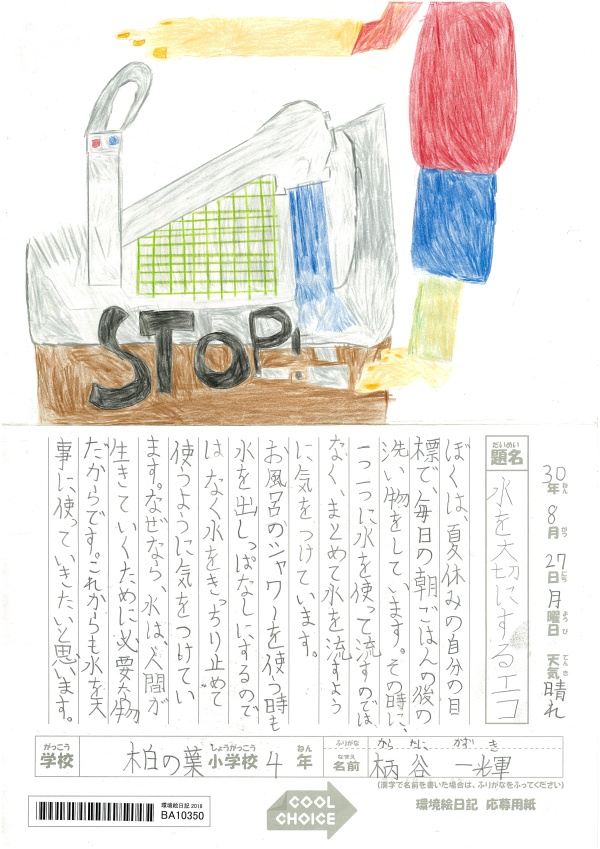 STOP!
30年 8月 27日 月曜日 天気 晴れ
ねん がつ にち ようび てんき
だいめい
題名
水を大切にするエコ
ぼくは、夏休みの自分の目
標で、毎日の朝ごはんの後の
洗い物をしています。その時に、
一つ一つに水を使って流すのでは
なく、まとめて水を流すよう
に気をつけています。
お風呂のシャワーを使う時も
水を出しっぱなしにするので
はなく水をきっちり止めて
使うように気をつけてい
ます。なぜなら、水は、人間が
生きていくために必要な物
だからです。これからも水を大
事に使っていきたいと思います。
がっこう しょうがっこう ねん
学校 柏の葉 小学校 4 年
ふりがな から たに かず き
なまえ
名前 柄谷 一輝
(漢字で名前を書いた場合は、ふりがなをふってください)
環境絵日記2018
BA10350
COOL
CHOICE
環境絵日記 応募用紙